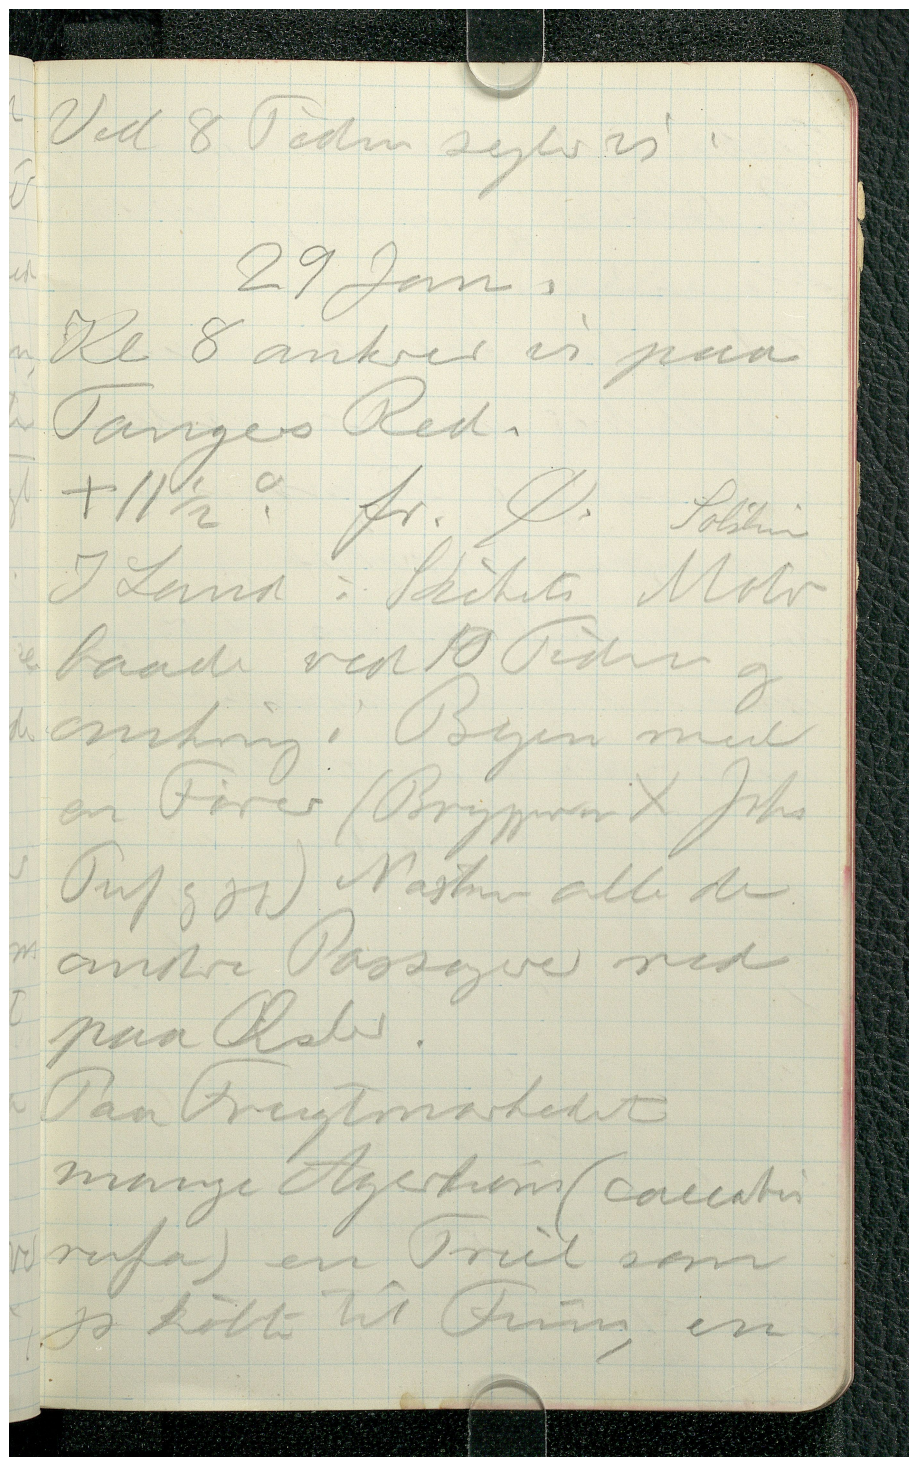 Ved 8 Tiden sejler vi.
29 Jan.
Kl 8 ankrer vi paa
Tangers Red.
+11 1/2 °. fr. Ø. Solskin
I Land i Skibets Motor
baade ved 10 Tiden og
omkring i Byen med
en Fører ( X
og jeg) Næsten alle de
andre Passagerer red
paa Æsler.
Paa Frugtmarkedet
mange Agerhøns (caccabis
rufa) en Triel som
jeg købte til Frims, en